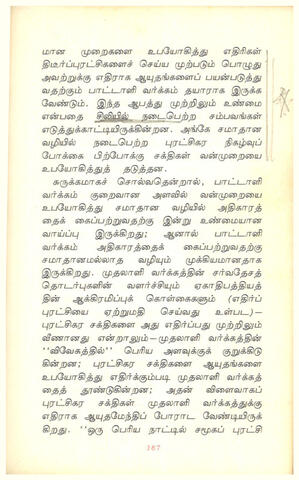 மான முறைகளை உபயோகித்து எதிரிகள்
திடீர்ப்புரட்சிகளைச் செய்ய முற்படும் பொழுது
அவற்றுக்கு எதிராக ஆயுதங்களைப் பயன்படுத்து
வதற்கும் பாட்டாளி வர்க்கம் தயாராக இருக்க
வேண்டும். இந்த ஆபத்து முற்றிலும் உண்மை
என்பதை சிலியில் நடைபெற்ற சம்பவங்கள்
எடுத்துக்காட்டியிருக்கின்றன. அங்கே சமாதான
வழியில் நடைபெற்ற புரட்சிகர நிகழ்வுப்
போக்கை பிற்போக்கு சக்திகள் வன்முறையை
உபயோகித்துத் தடுத்தன.
சுருக்கமாகச் சொல்வதென்றால், பாட்டாளி
வர்க்கம் குறைவான அளவில் வன்முறையை
உபயோகித்து சமாதான வழியில் அதிகாரத்
தைக் கைப்பற்றுவதற்கு இன்று உண்மையான
வாய்ப்பு இருக்கிறது; ஆனால் பாட்டாளி
வர்க்கம் அதிகாரத்தைக் கைப்பற்றுவதற்கு
சமாதானமல்லாத வழியும் முக்கியமானதாக
இருக்கிறது. முதலாளி வர்க்கத்தின் சர்வதேசத்
தொடர்புகளின் வளர்ச்சியும் ஏகாதிபத்தியத்
தின் ஆக்கிரமிப்புக் கொள்கைகளும் (எதிர்ப்
புரட்சியை ஏற்றுமதி செய்வது உள்பட)—
புரட்சிகர சக்திகளை அது எதிர்ப்பது முற்றிலும்
வீணானது என்றாலும்—முதலாளி வர்க்கத்தின்
''விவேகத்தில்'' பெரிய அளவுக்குக் குறுக்கிடு
கின்றன; புரட்சிகர சக்திகளை ஆயுதங்களை
உபயோகித்து எதிர்க்கும்படி முதலாளி வர்க்கத்
தைத் தூண்டுகின்றன; அதன் விளைவாகப்
புரட்சிகர சக்திகள் முதலாளி வர்க்கத்துக்கு
எதிராக ஆயுதமேந்திப் போராட வேண்டியிருக்
கிறது. ''ஒரு பெரிய நாட்டில் சமூகப் புரட்சி
187